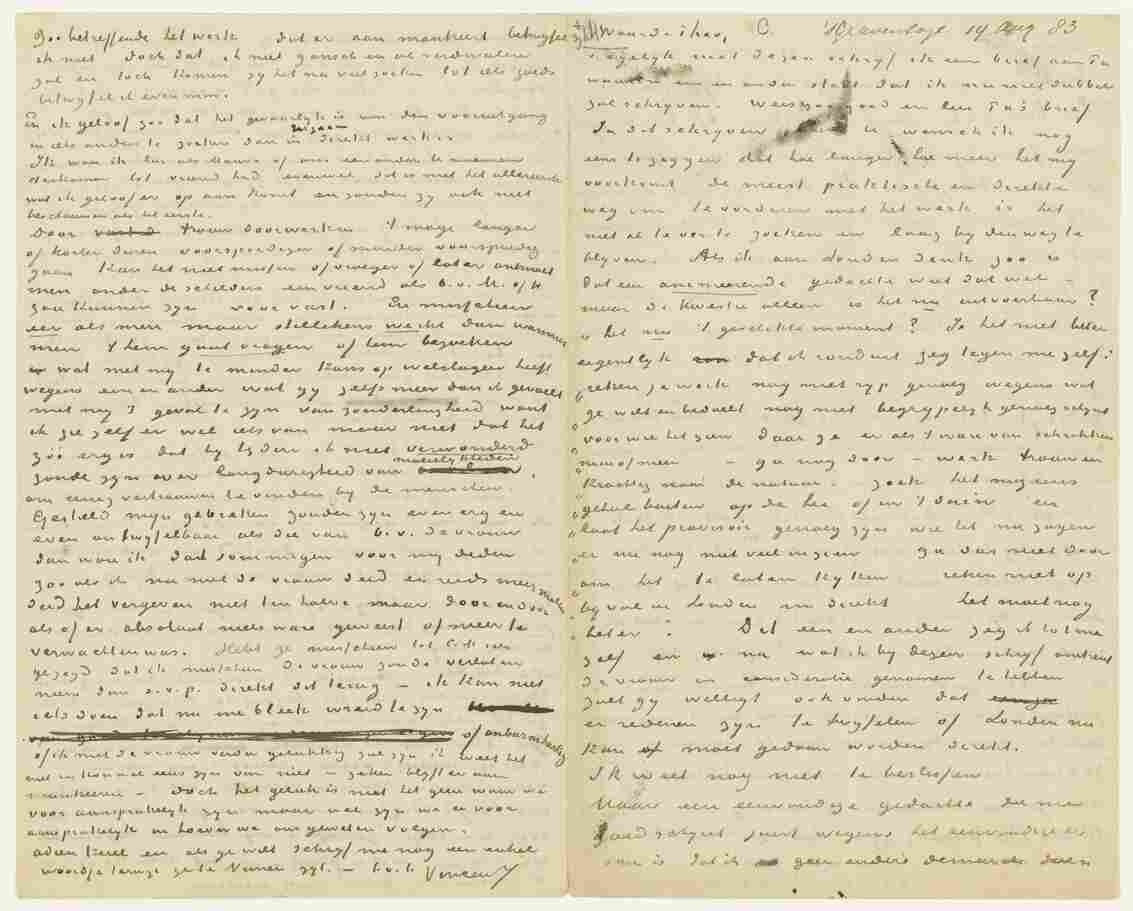 Zoo betreffende het werk dat er aan mankeert betwijfel
ik niet doch dat ik niet gansch en al verdwalen
zal en toch komen zij het na veel zoeken tot iets goeds
betwijfel ik evenmin.
En ik geloof zoo dat het gevaarlijk is van den vooruitgang
in iets anders te zoeken dan in zijn direkt werk.
Ik wou ik
verkomen tot vriend had evenwel dat is niet het allereerste
wat ik geloof er op aan komt en zouden zij ook niet
beschouwen als het eerste.
Door trouw doorwerken 't moge langer
of korter duren voorspoediger of minder voorspoedig
gaan kan het niet missen of vroeger of later ontmoet
men onder de schilders een vriend als b.v. M. of H
zou kunnen zijn voor vast. En misschien
eer als men maar stillekens werkt dan wanneer
men 't hem gaat vragen of hem bezoeken
wat met mij te minder kans op welslagen heeft
wegens een en ander wat gij zelfs meer dan ik gevoelt
met mij 't geval te zijn van zonderlingheid want
ik zie zelf er wel iets van maar niet dat het
zóó erg is dat bij tijden ik niet verwonderd
zoude zijn over langdurigheid van moeielijkheden
om eenig vertrouwen te vinden bij de menschen.
Gesteld mijn gebreken zouden zijn even erg en
even ontwijfelbaar als die van b.v. de vrouw
dan wou ik dat sommigen voor mij deden
zoo als ik nu met de vrouw deed en reeds meermalen
deed het vergeven niet ten halve maar door en door
als of er absoluut niets ware geweest of meer te
verwachten was. Hebt ge misschien tot
gezegd dat ik misschien de vrouw zoude verlaten
neem dan s.v.p. direkt dit terug – ik kan niet
iets doen dat nu me bleek wreed te zijn
of onbarmhartig
of ik met de vrouw verder gelukkig zal zijn ik weet het
niet en kan wel eens zijn van niet – zeker blijft er aan
mankeeren – doch het geluk is niet het geen waar we
voor aansprakelijk zijn maar wel zijn we er voor
aansprakelijk in hoever we ons geweten volgen.
adieu kerel en als ge wilt schrijf me nog een enkel
woordje terwijl ge te Nunen zijt. – t.à.t. Vincent
Waarde Theo, 's Gravenhage 14 Aug 83
Tegelijk met dezen schrijf ik een brief aan Pa
waarin een en ander staat dat ik nu niet dubbel
zal schrijven. Wees zoo goed en lees Pa's brief
In dit schrijven wensch ik nog
eens te zeggen dat hoe langer hoe meer het mij
voorkomt de meest praktische en direkte
weg om te vorderen met het werk is het
niet al te ver te zoeken en laag bij den weg te
blijven. Als ik aan Londen denk zoo is
dat een animeerende gedachte weet dat wel –
maar de kwestie alleen is het nu uitvoerbaar?
is het nu 't geschikte moment? Is het niet beter
eigentlijk dat ik ronduit zeg tegen me zelf:
reken je werk nog niet rijp genoeg wegens wat
ge wilt en bedoelt nog niet begrijpelijk genoeg zelfs
voor wie het zien daar ze er als 't ware van schrikken
min of meer – ga nog door – werk trouw en
krachtig naar de natuur. Zoek het nog eens
geheel buiten op de hei of in 't duin en
laat het provisoir genoeg zijn wie het nu zagen
er nu nog niet veel in zien ga dus niet door
om het te laten kijken reken niet op
bijval in Londen nu direkt het moet nog
beter". Dit een en ander zeg ik tot me
zelf en na wat ik bij dezen schrijf omtrent
de vrouw in consideratie genomen te hebben
zult gij welligt ook vinden dat
er redenen zijn te twijfelen of Londen nu
kan of moet gedaan worden direkt.
Ik weet nog niet te beslissen
Maar een eenvoudige gedachte die me
raadzaamst lijkt wegens het eenvoudige er
van is dat ik geen andere demarches doen